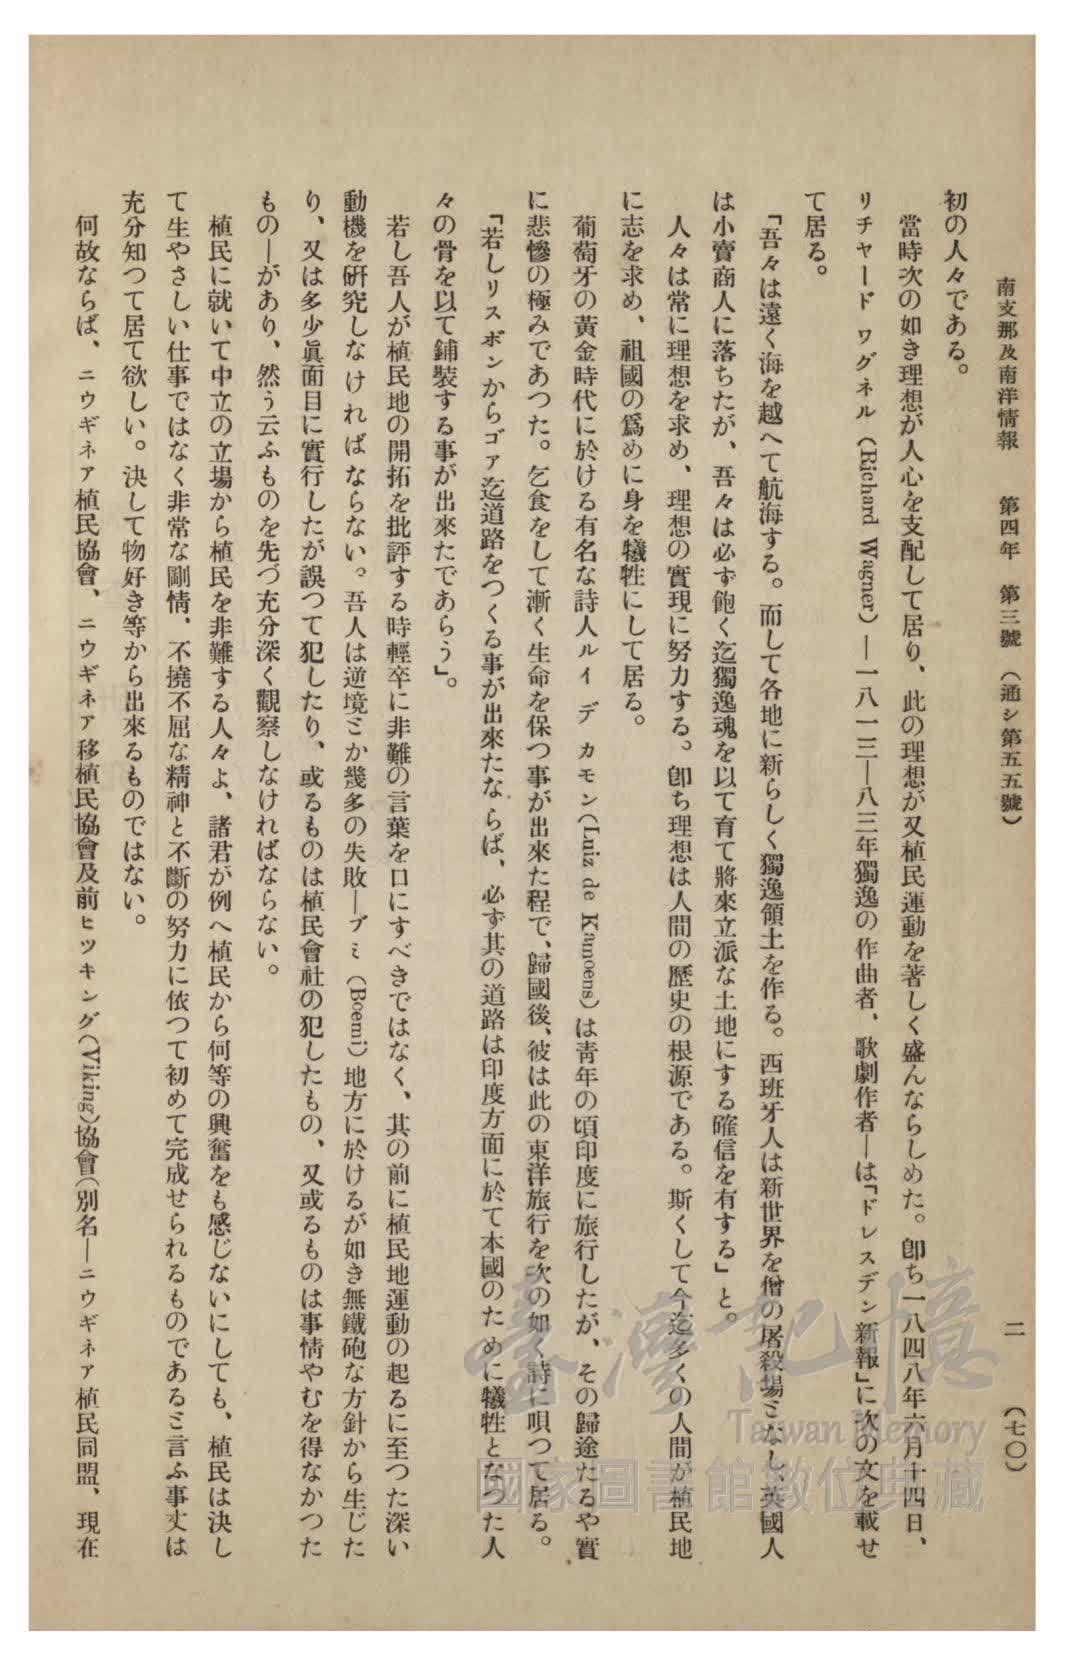 南支那及南洋情報　第四年　第三號　（通シ第五五號）　二　（七〇）
初の人々である。
當時次の如き理想が人心を支配して居り、此の理想が又植民運動を著しく盛んならしめた。卽ち一八四八年六月十四日、
リチャード ワグネル（Richard Wagner）—一八一三—八三年獨逸の作曲者、歌劇作者—は「ドレスデン新報」に次の文を載せ
て居る。
「吾々は遠く海を越へて航海する。而して各地に新らしく獨逸領土を作る。西班牙人は新世界を僧の屠殺場となし、英國人
は小賣商人に落ちたが、吾々は必ず飽く迄獨逸魂を以て育て將來立派な土地にする確信を有する」と。
人々は常に理想を求め、理想の實現に努力する。卽ち理想は人間の歷史の根源である。斯くして今迄多くの人間が植民地
に志を求め、祖國の爲めに身を犧牲にして居る。
葡萄牙の黃金時代に於ける有名な詩人ルイ デ カモン（Luiz de Kamoens）は靑年の頃印度に旅行したが、その歸途たるや實
に悲慘の極みであつた。乞食をして漸く生命を保つ事が出來た程で、歸國後、彼は此の東洋旅行を次の如く詩に唄つて居る。
「若しリスボンからゴア迄道路をつくる事が出來たならば、必ず其の道路は印度方面に於て本國のために犧牲となつた人
々の骨を以て鋪裝する事が出來たであらう」。
若し吾人が植民地の開拓を批評する時輕卒に非難の言葉を口にすべきではなく、其の前に植民地運動の起るに至つた深い
動機を硏究しなければならない。吾人は逆境とか幾多の失敗—ブミ（Boemi）地方に於けるが如き無鐵砲な方針から生じた
り、又は多少眞面目に實行したが誤つて犯したり、或るものは植民會社の犯したもの、又或るものは事情やむを得なかつた
もの—があり、然う云ふものを先づ充分深く觀察しなければならない。
植民に就いて中立の立場から植民を非難する人々よ、諸君が例へ植民から何等の興奮をも感じないにしても、植民は決し
て生やさしい仕事ではなく非常な剛情、不撓不屈な精神と不斷の努力に依つて初めて完成せられるものであると言ふ事丈は
充分知つて居て欲しい。決して物好き等から出來るものではない。
何故ならば、ニウギネア植民協會、ニウギネア移植民協會及前ヒツキング（Viking）協會（別名—ニウギネア植民同盟、現在
臺灣記憶
Taiwan Memory
國家圖書館數位典藏